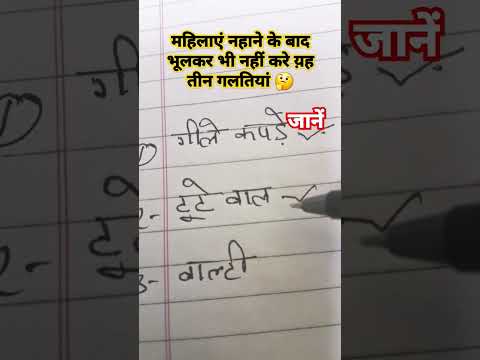 महिलाएं नहाने के बाद
भूलकर भी नहीं करे य़ह
तीन गलतियां 🤔
जानें
1) गीले कपड़े ✓
जानें
2- टूटे बाल ✓
3- बाल्टी